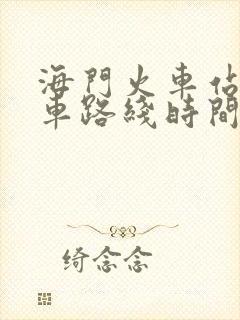 海門火車佔
車路綫時間
绮念念